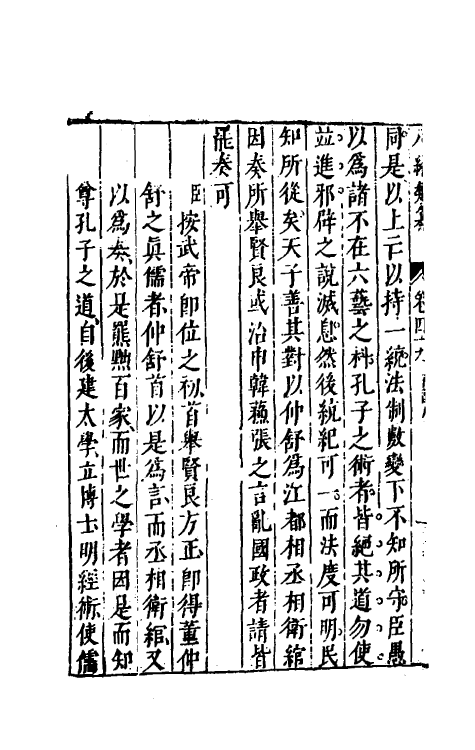 同是以上亡以持一統法制數變下不知所守臣愚
以爲諸不在六藝之科孔子之術者皆絕其道勿使
並進邪辟之說滅息然後統紀可一而法度可明民
知所從矣天子善其對以仲舒爲江都相丞相衛綰
因奏所舉賢良或治申韓蘇張之言亂國政者請皆
罷奏可
臣按武帝卽位之初首舉賢良方正卽得董仲
舒之眞儒者仲舒首以是爲言而丞相衛綰又
以爲奏於是罷黜百家而世之學者因是而知
尊孔子之道自後建太學立博士明經術使儒